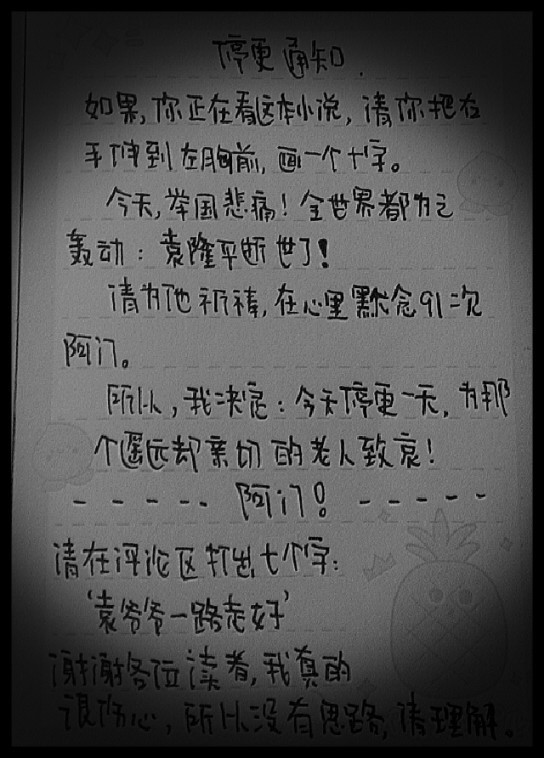 停更通知.
如果,你正在看这本小说,请你把右
手伸到左胸前,画一个十字。
今天,举国悲痛!全世界都为之
轰动:袁隆平逝世了!
请为他祈祷,在心里默念91次
阿门。
所以,我决定:今天停更一天,为那
个遥远却亲切的老人致哀!
-----阿门!-----
请在评论区打出七个字:
‘袁爷爷一路走好’
谢谢各位读者,我真的
很伤心,所以没有思路,请理解。